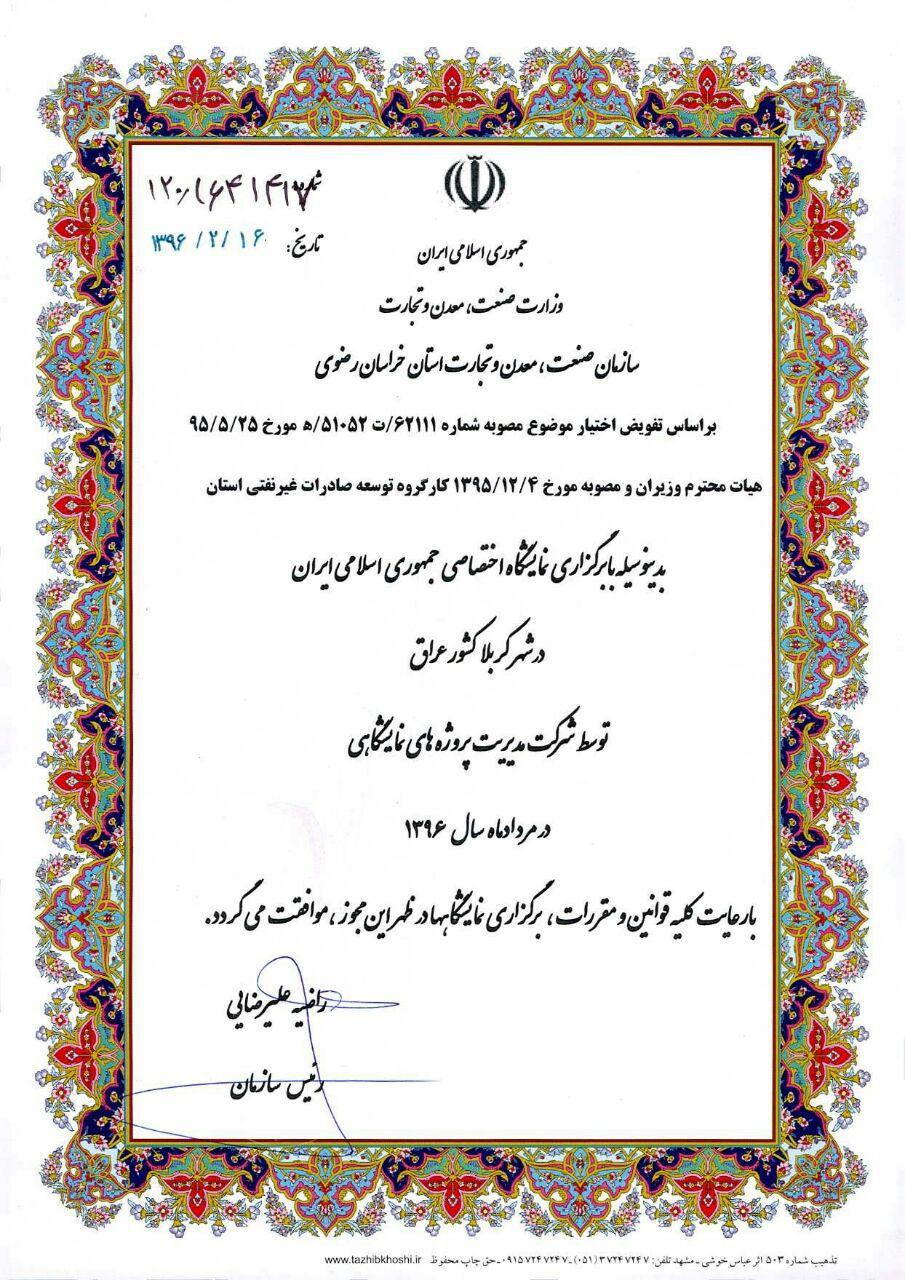 شماره: ۱۲۰/۱۶۴۱۴۱۷
تاریخ: ۱۳۹۶/۲/۱۶
جمهوری اسلامی ایران
وزارت صنعت، معدن و تجارت
سازمان صنعت، معدن و تجارت استان خراسان رضوی
براساس تفویض اختیار موضوع مصوبه شماره ۶۲۱۱۱/ت ۵۱۰۵۲/ه مورخ ۹۵/۵/۲۵
هیات محترم وزیران و مصوبه مورخ ۱۳۹۵/۱۲/۴ کارگروه توسعه صادرات غیرنفتی استان
بدینوسیله با برگزاری نمایشگاه اختصاصی جمهوری اسلامی ایران
در شهر کربلا کشور عراق
توسط شرکت مدیریت پروژه های نمایشگاهی
در مرداد ماه سال ۱۳۹۶
با رعایت کلیه قوانین و مقررات، برگزاری نمایشگاهها در ظهر این مجوز، موافقت می گردد.
راضیه علیرضایی
رئیس سازمان
تذهیب شماره ۵۰۳ اثر عباس خوشی ـ مشهد تلفن: ۳۷۲۴۷۲۴۷ (۰۵۱) ـ ۰۹۱۵۷۲۴۷۲۴۷ ـ حق چاپ محفوظ www.tazhibkhoshi.ir